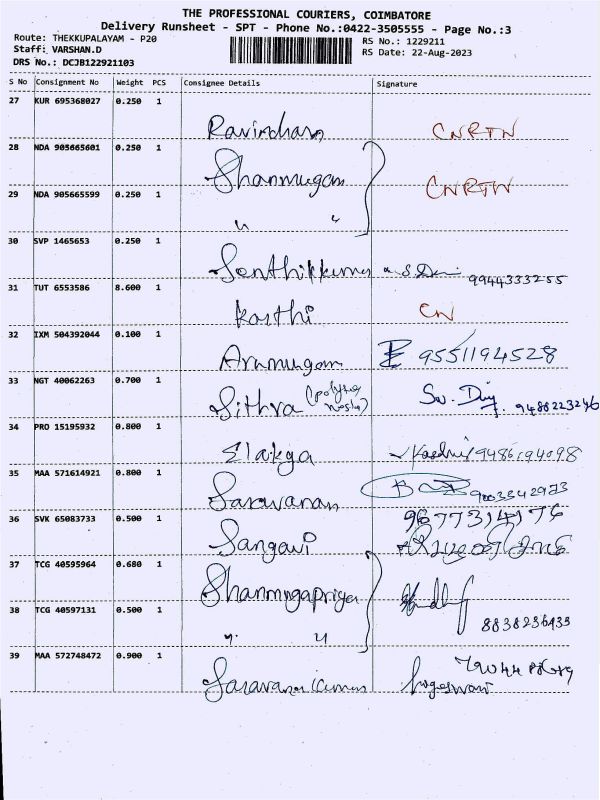 THE PROFESSIONAL COURIERS, COIMBATORE
Delivery Runsheet - SPT - Phone No.:0422-3505555 - Page No.:3
Route: THEKKUPALAYAM - P20
RS No.: 1229211
Staff: VARSHAN.D
RS Date: 22-Aug-2023
DRS No.: DCJB122921103
S No Consignment No Weight PCS Consignee Details Signature
27 KUR 695368027 0.250 1
Ravindharn CNRTN
28 NDA 905665601 0.250 1
Shanmugam
29 NDA 905665599 0.250 1 CNRTN
" "
30 SVP 1465653 0.250 1
Senthilkumar 9944333255
31 TUT 6553586 8.600 1
Karthi CN
32 IXM 504392044 0.100 1
Arumugam 9551194528
33 NGT 40062263 0.700 1
Sithra 9488223246
34 PRO 15195932 0.800 1
Elakya
35 MAA 571614921 0.800 1
Saravanan
36 SVK 65083733 0.500 1
Sangavi
37 TCG 40595964 0.680 1
Shanmugapriya
38 TCG 40597131 0.500 1
" " 8838236933
39 MAA 572748472 0.900 1
Saravanakumar